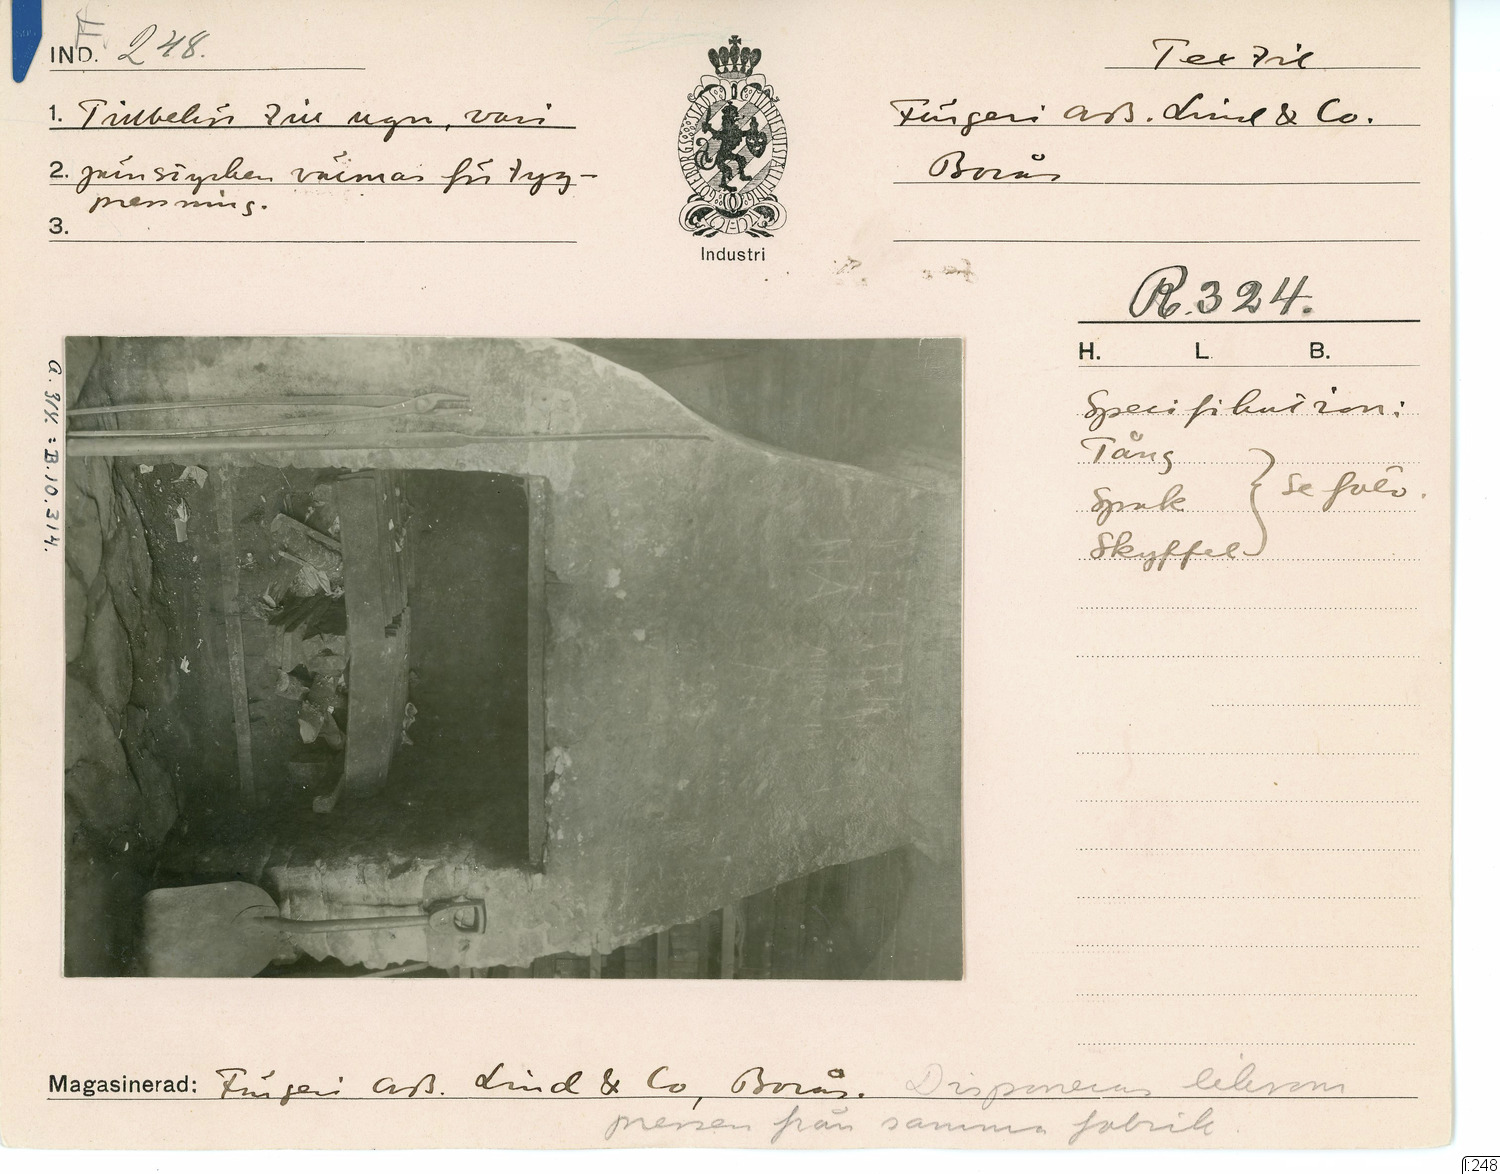 IND. 248.
Textil
1. Tillbehör till ugn, vari
Färgeri AB. Lind & Co.
2. järnstycken värmas för tyg-
pressning.
Borås
3.
GÖTEBORGS STADS MINNESUTSTÄLLNING
Industri
R.324.
H. L. B.
Specifikation:
Tång
Spak
Skyffel
Se foto.
A. 314 = B.10.314.
Magasinerad: Färgeri AB. Lind & Co, Borås. Disponeras liksom
pressen från samma fabrik.
I:248